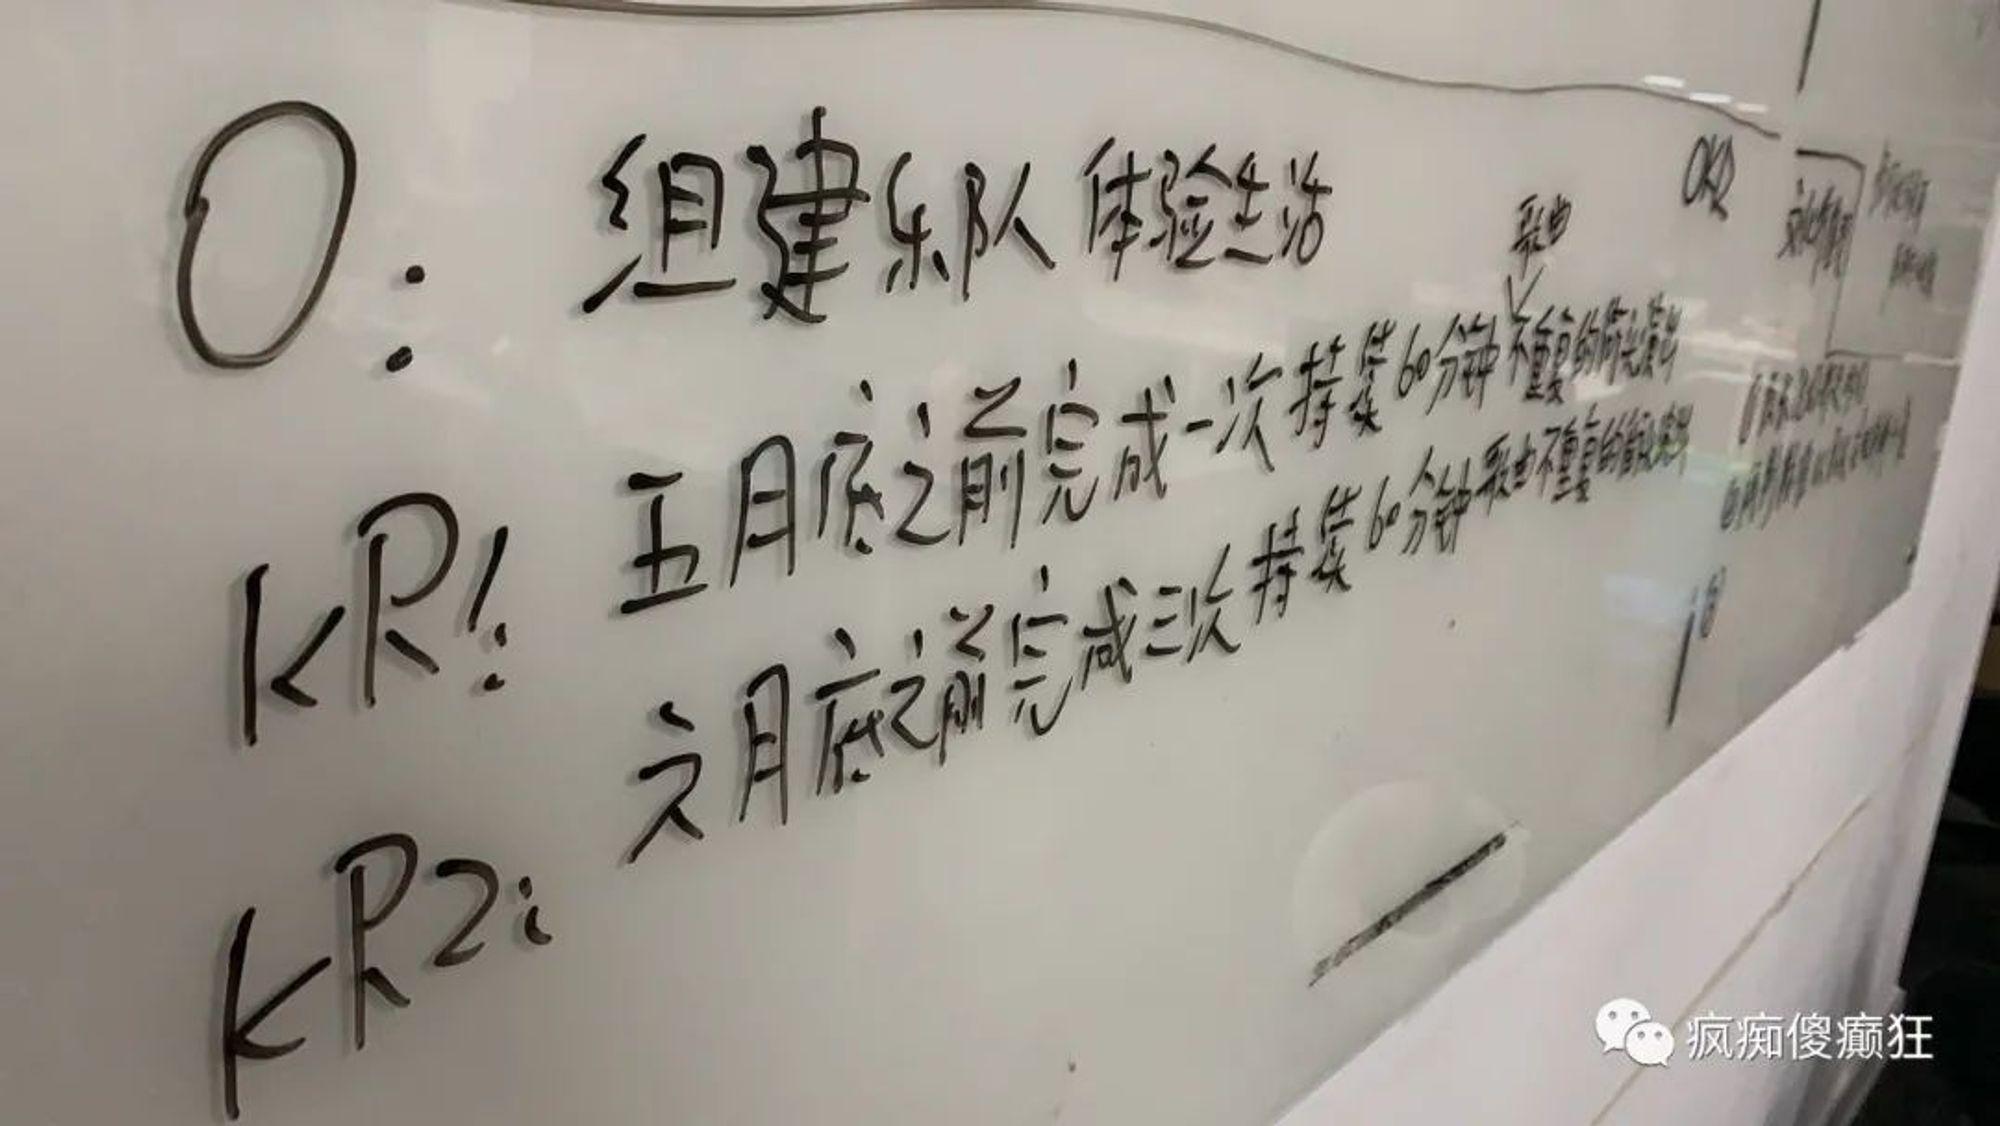 O: 组建乐队 体验生活
歌曲
KR1: 五月底之前完成一次持续60分钟不重复的街头演出
KR2: 六月底之前完成三次持续60分钟歌曲不重复的街头演出
OKR
疯痴傻癫狂